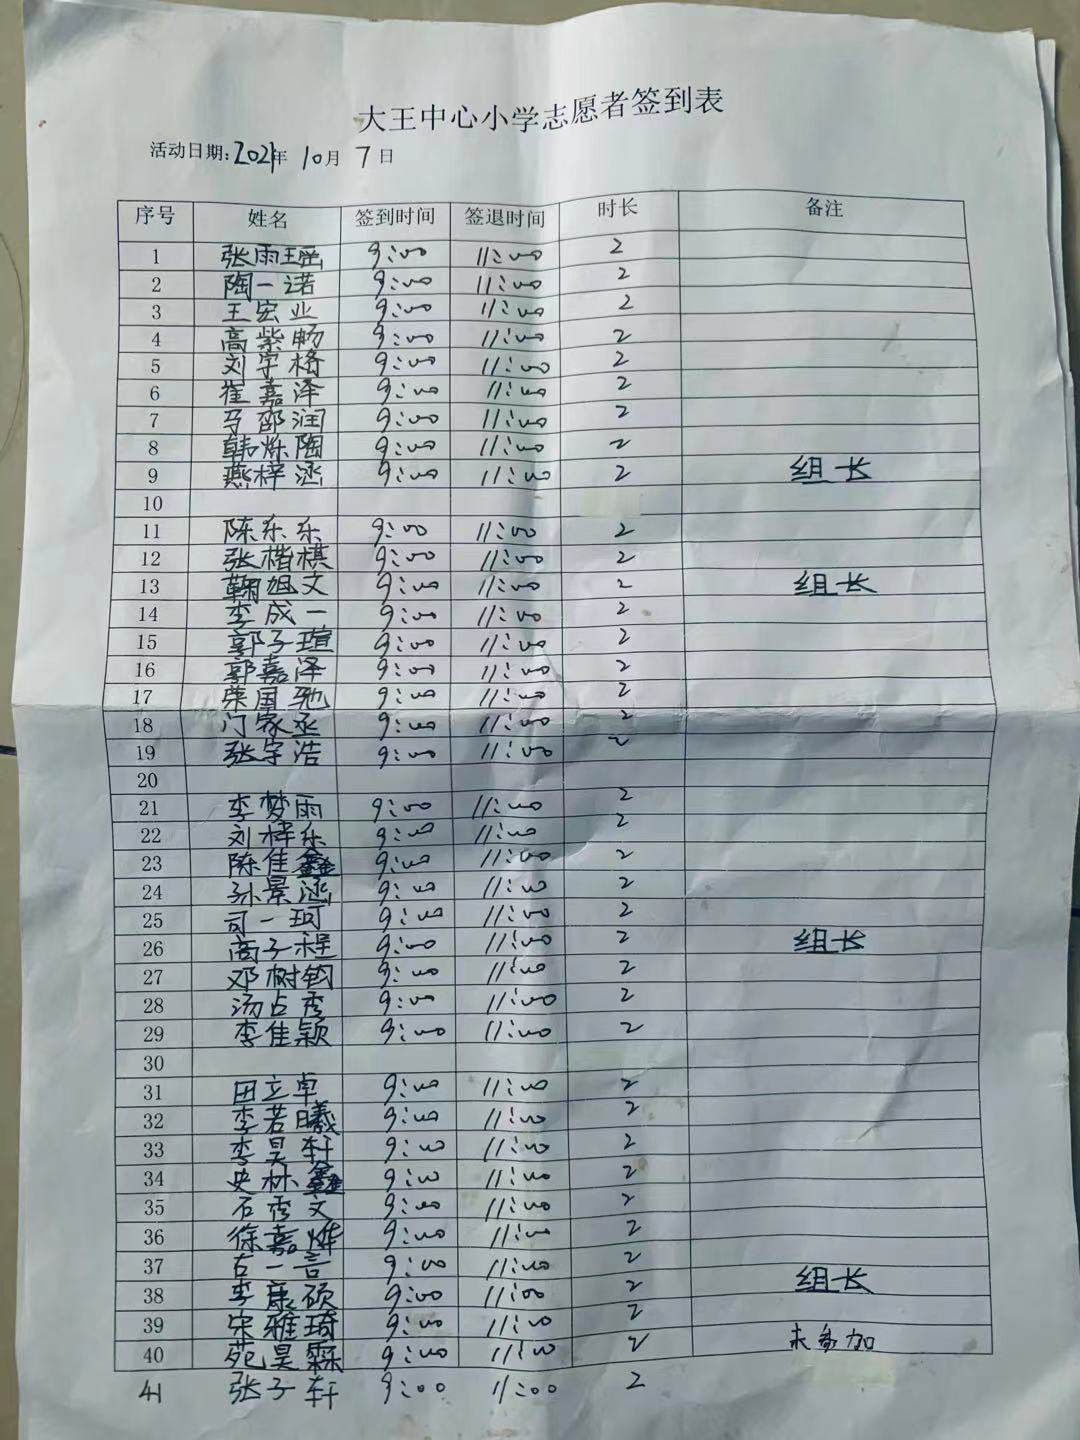 大王中心小学志愿者签到表
活动日期:2021年 10月 7日
序号 姓名 签到时间 签退时间 时长 备注
1 张雨瑶 9:00 11:00 2
2 陶一诺 9:00 11:00 2
3 王宏业 9:00 11:00 2
4 高紫畅 9:00 11:00 2
5 刘宇格 9:00 11:00 2
6 崔嘉泽 9:00 11:00 2
7 马邵润 9:00 11:00 2
8 韩烁陶 9:00 11:00 2
9 燕梓涵 9:00 11:00 2 组长
10
11 陈东乐 9:00 11:00 2
12 张楷棋 9:00 11:00 2
13 鞠旭文 9:00 11:00 2 组长
14 李成一 9:00 11:00 2
15 郭子瑄 9:00 11:00 2
16 郭嘉泽 9:00 11:00 2
17 荣国驰 9:00 11:00 2
18 门家丞 9:00 11:00 2
19 张宇浩 9:00 11:00 2
20
21 李梦雨 9:00 11:00 2
22 刘梓乐 9:00 11:00 2
23 陈佳鑫 9:00 11:00 2
24 孙景涵 9:00 11:00 2
25 司一珂 9:00 11:00 2
26 商子程 9:00 11:00 2 组长
27 邓树钧 9:00 11:00 2
28 汤占秀 9:00 11:00 2
29 李佳颖 9:00 11:00 2
30
31 田立卓 9:00 11:00 2
32 李若曦 9:00 11:00 2
33 李昊轩 9:00 11:00 2
34 史林鑫 9:00 11:00 2
35 石秀文 9:00 11:00 2
36 徐嘉烨 9:00 11:00 2
37 古一言 9:00 11:00 2
38 李康硕 9:00 11:00 2 组长
39 宋雅琦 9:00 11:00 2
40 苑昊霖 9:00 11:00 2 未参加
41 张子轩 9:00 11:00 2